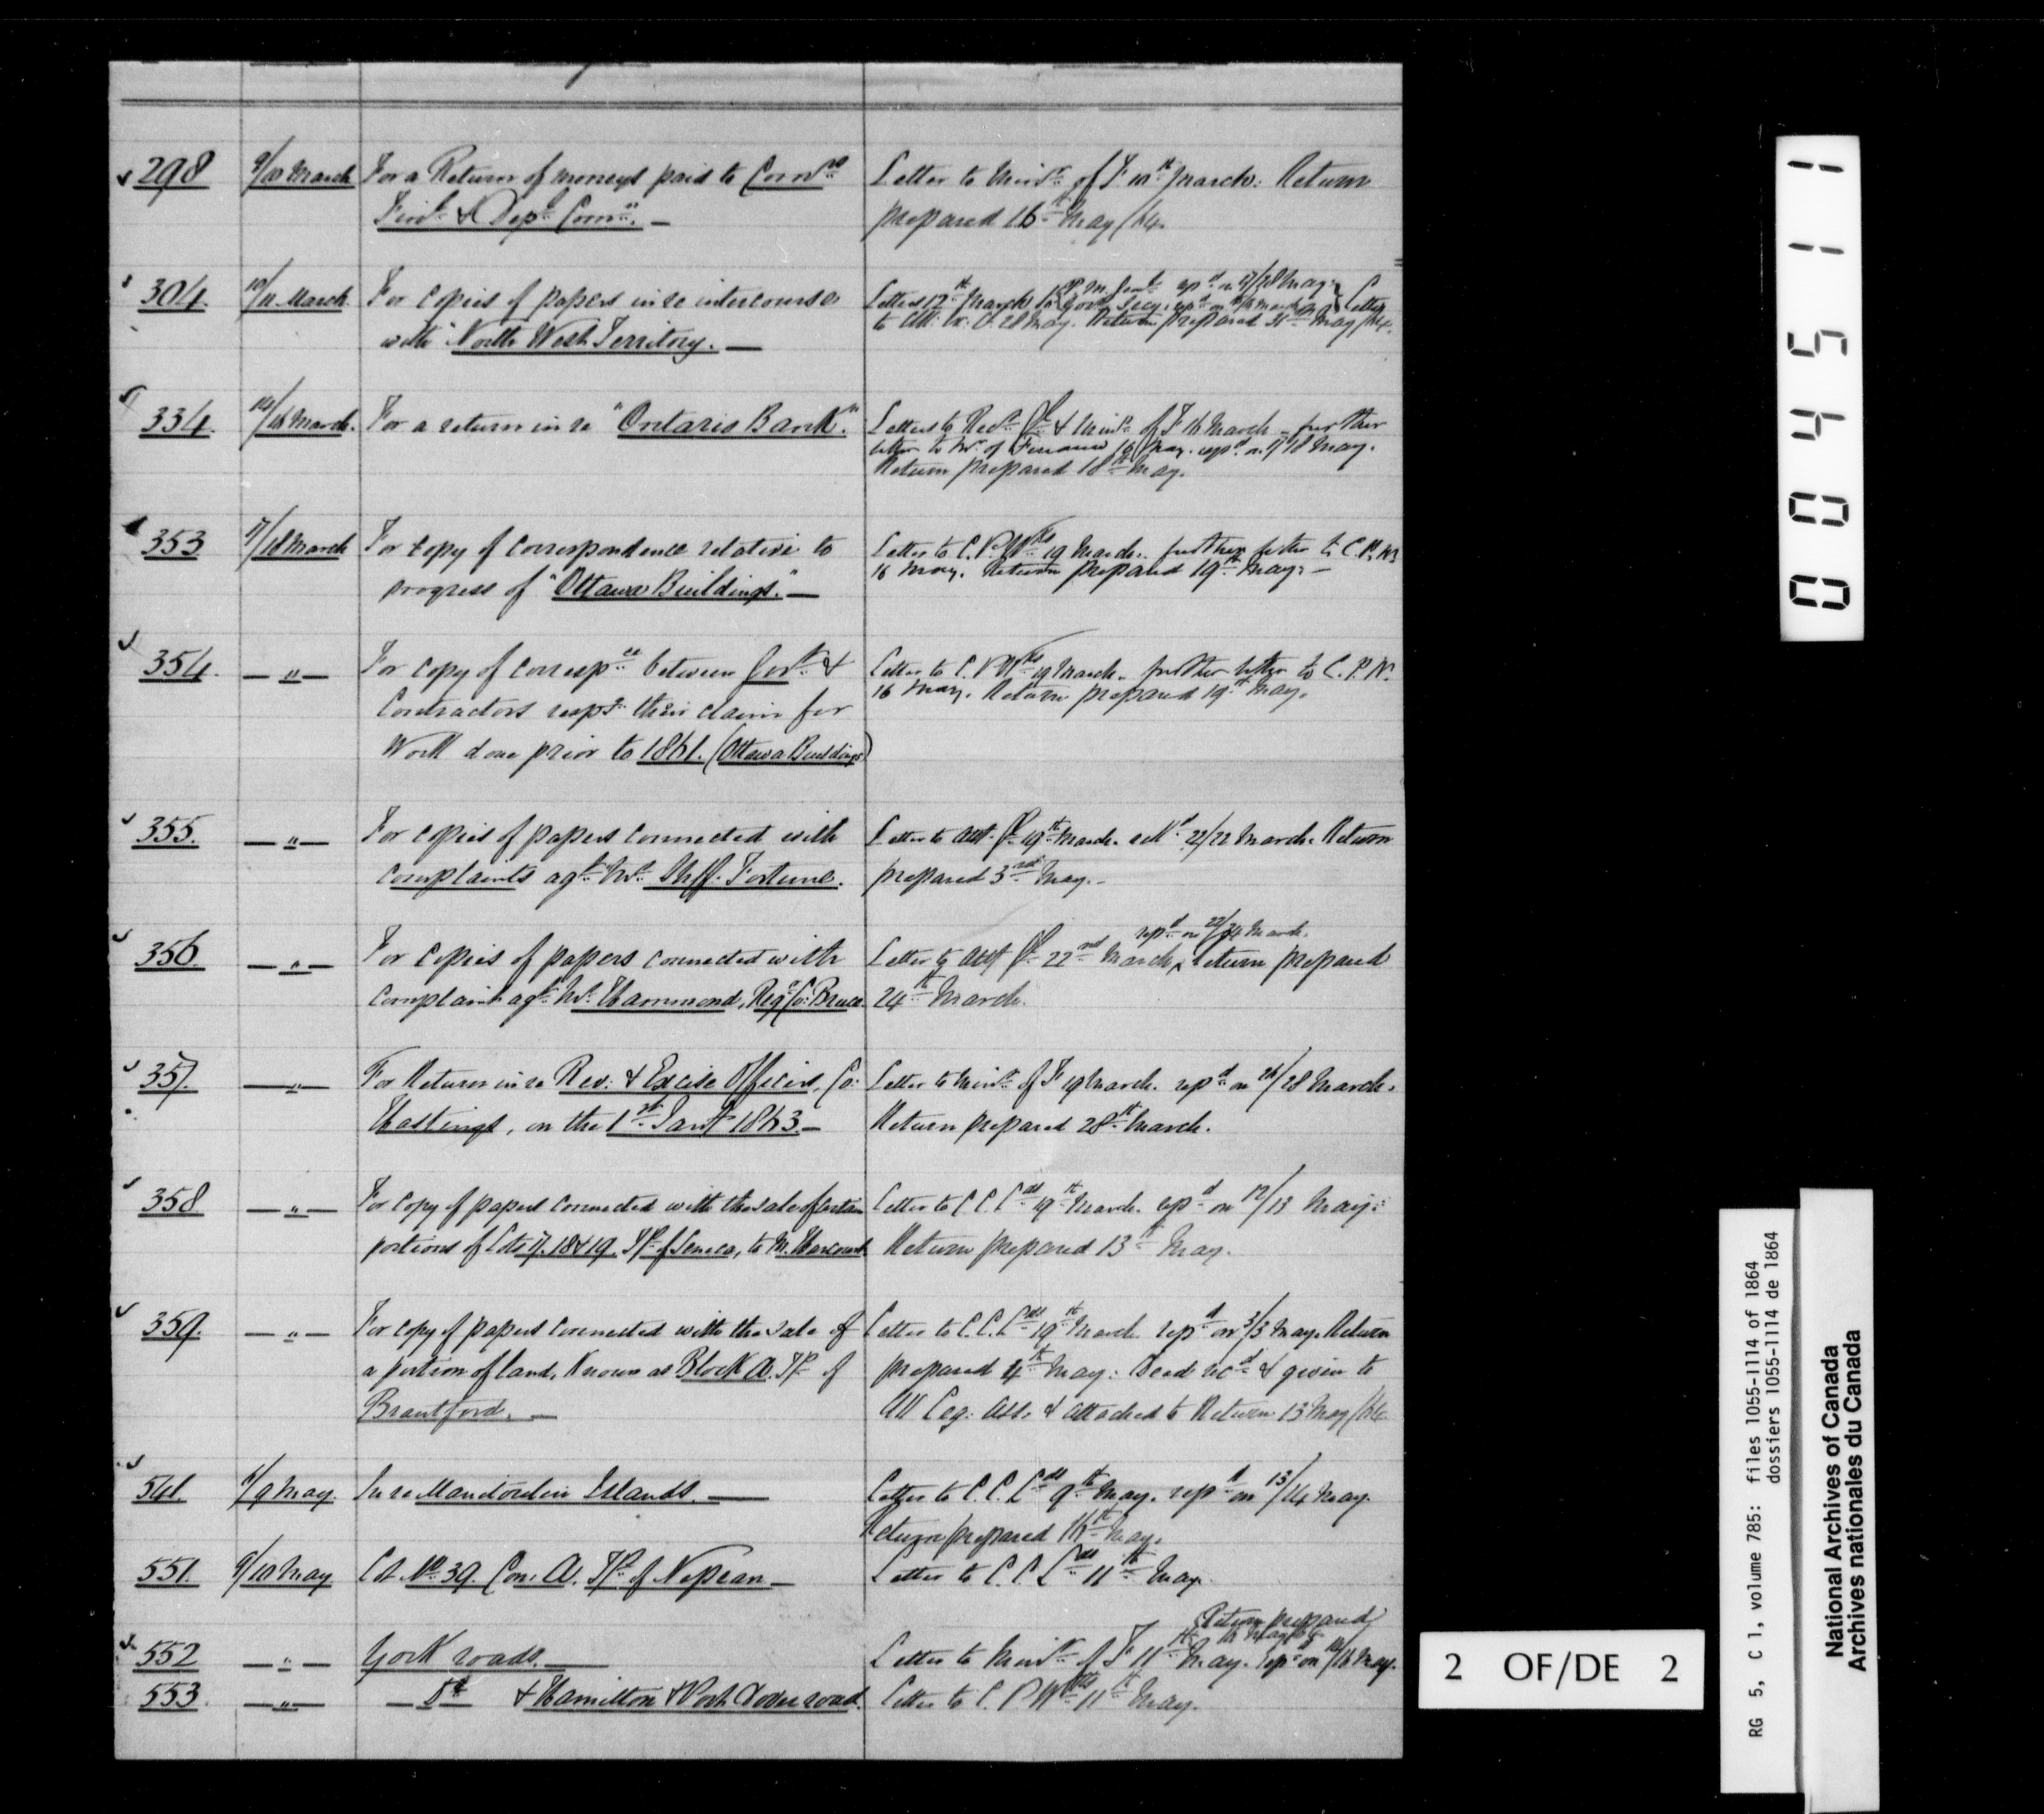 298 9/10 March For a Return of moneys paid to Comrs
Finl & Depl Comn. — Letter to Minr of F 10th March: Return
prepared 16th May /64.
304. 10/11 March For copies of papers in re intercourse
with "North West Territory. — Letters 12th March to P.M. Genl repd on 27/28 May
Govr Secy repd on March Letter
to 28 May. Return prepared 31st May /64.
334. 14/16 March. For a return in re "Ontario Bank". Letters to Recr Gl & Minr of F 16 March — further
letter to Mr of Finance May. repd on 18 May.
Return prepared 18th May.
353 17/18 March For copy of correspondence relative to
progress of "Ottawa Buildings." — Letter to C. P. Wks 19 March. further letter to C.P.W.
16 May. Return prepared 19th May. —
354. — " — For copy of correspce between Govt &
Contractors respg their claim for
Work done prior to 1861. (Ottawa Buildings) Letter to C. P. Wks 19 March. further letter to C. P. W.
16 May. Return prepared 19th May.
355. — " — For copies of papers connected with
complaints agt Mr Shff. Fortune. Letter to Atty Gl 19th March. 22/22 March. Return
prepared 3rd May. —
356. — " — For copies of papers connected with
complaint agt Mr Hammond, Regr Co: Bruce. repd on 22/24 March.
Letter to Atty Gl 22nd March, Return prepared
24th March.
357. — " — For Return in re Rev: & Excise Officers, Co:
Hastings, on the 1st Jany 1863. — Letter to Minr of F 19 March. repd on 26/28 March.
Return prepared 28th March.
358 — " — For copy of papers connected with the sale of certain
portions of Lots 17. 18 & 19. Tp of Seneca, to M. Harcourt Letter to C. C. Lds 19th March. repd on 12/13 May.
Return prepared 13th May.
359. — " — For copy of papers connected with the sale of
a portion of land, Known as Block A. Tp of
Brantford. — Letter to C. C. Lds 19th March repd on 3/3 May. Return
prepared 4th May: Deed recd & given to
Leg: Ass. & attached to Return 13 May /64
541. 6/9 May. In re Manitoulin Islands. — Letter to C. C. Lds 9th May. repd on 13/14 May.
Return prepared 16th May.
551. 9/10 May Lot No 39. Con. A. Tp of Nepean — Letter to C. C. Lds 11th May.
552 — " — York roads. — Return prepared
16 May /64
Letter to Minr of F 11th May. repd on /16 May.
553. — " — — Do & Hamilton & Port Dover road. Letter to C. P. Wks 11th May.
004511
2 OF/DE 2
RG 5, C 1, volume 785: files 1055-1114 of 1864
dossiers 1055-1114 de 1864
National Archives of Canada
Archives nationales du Canada